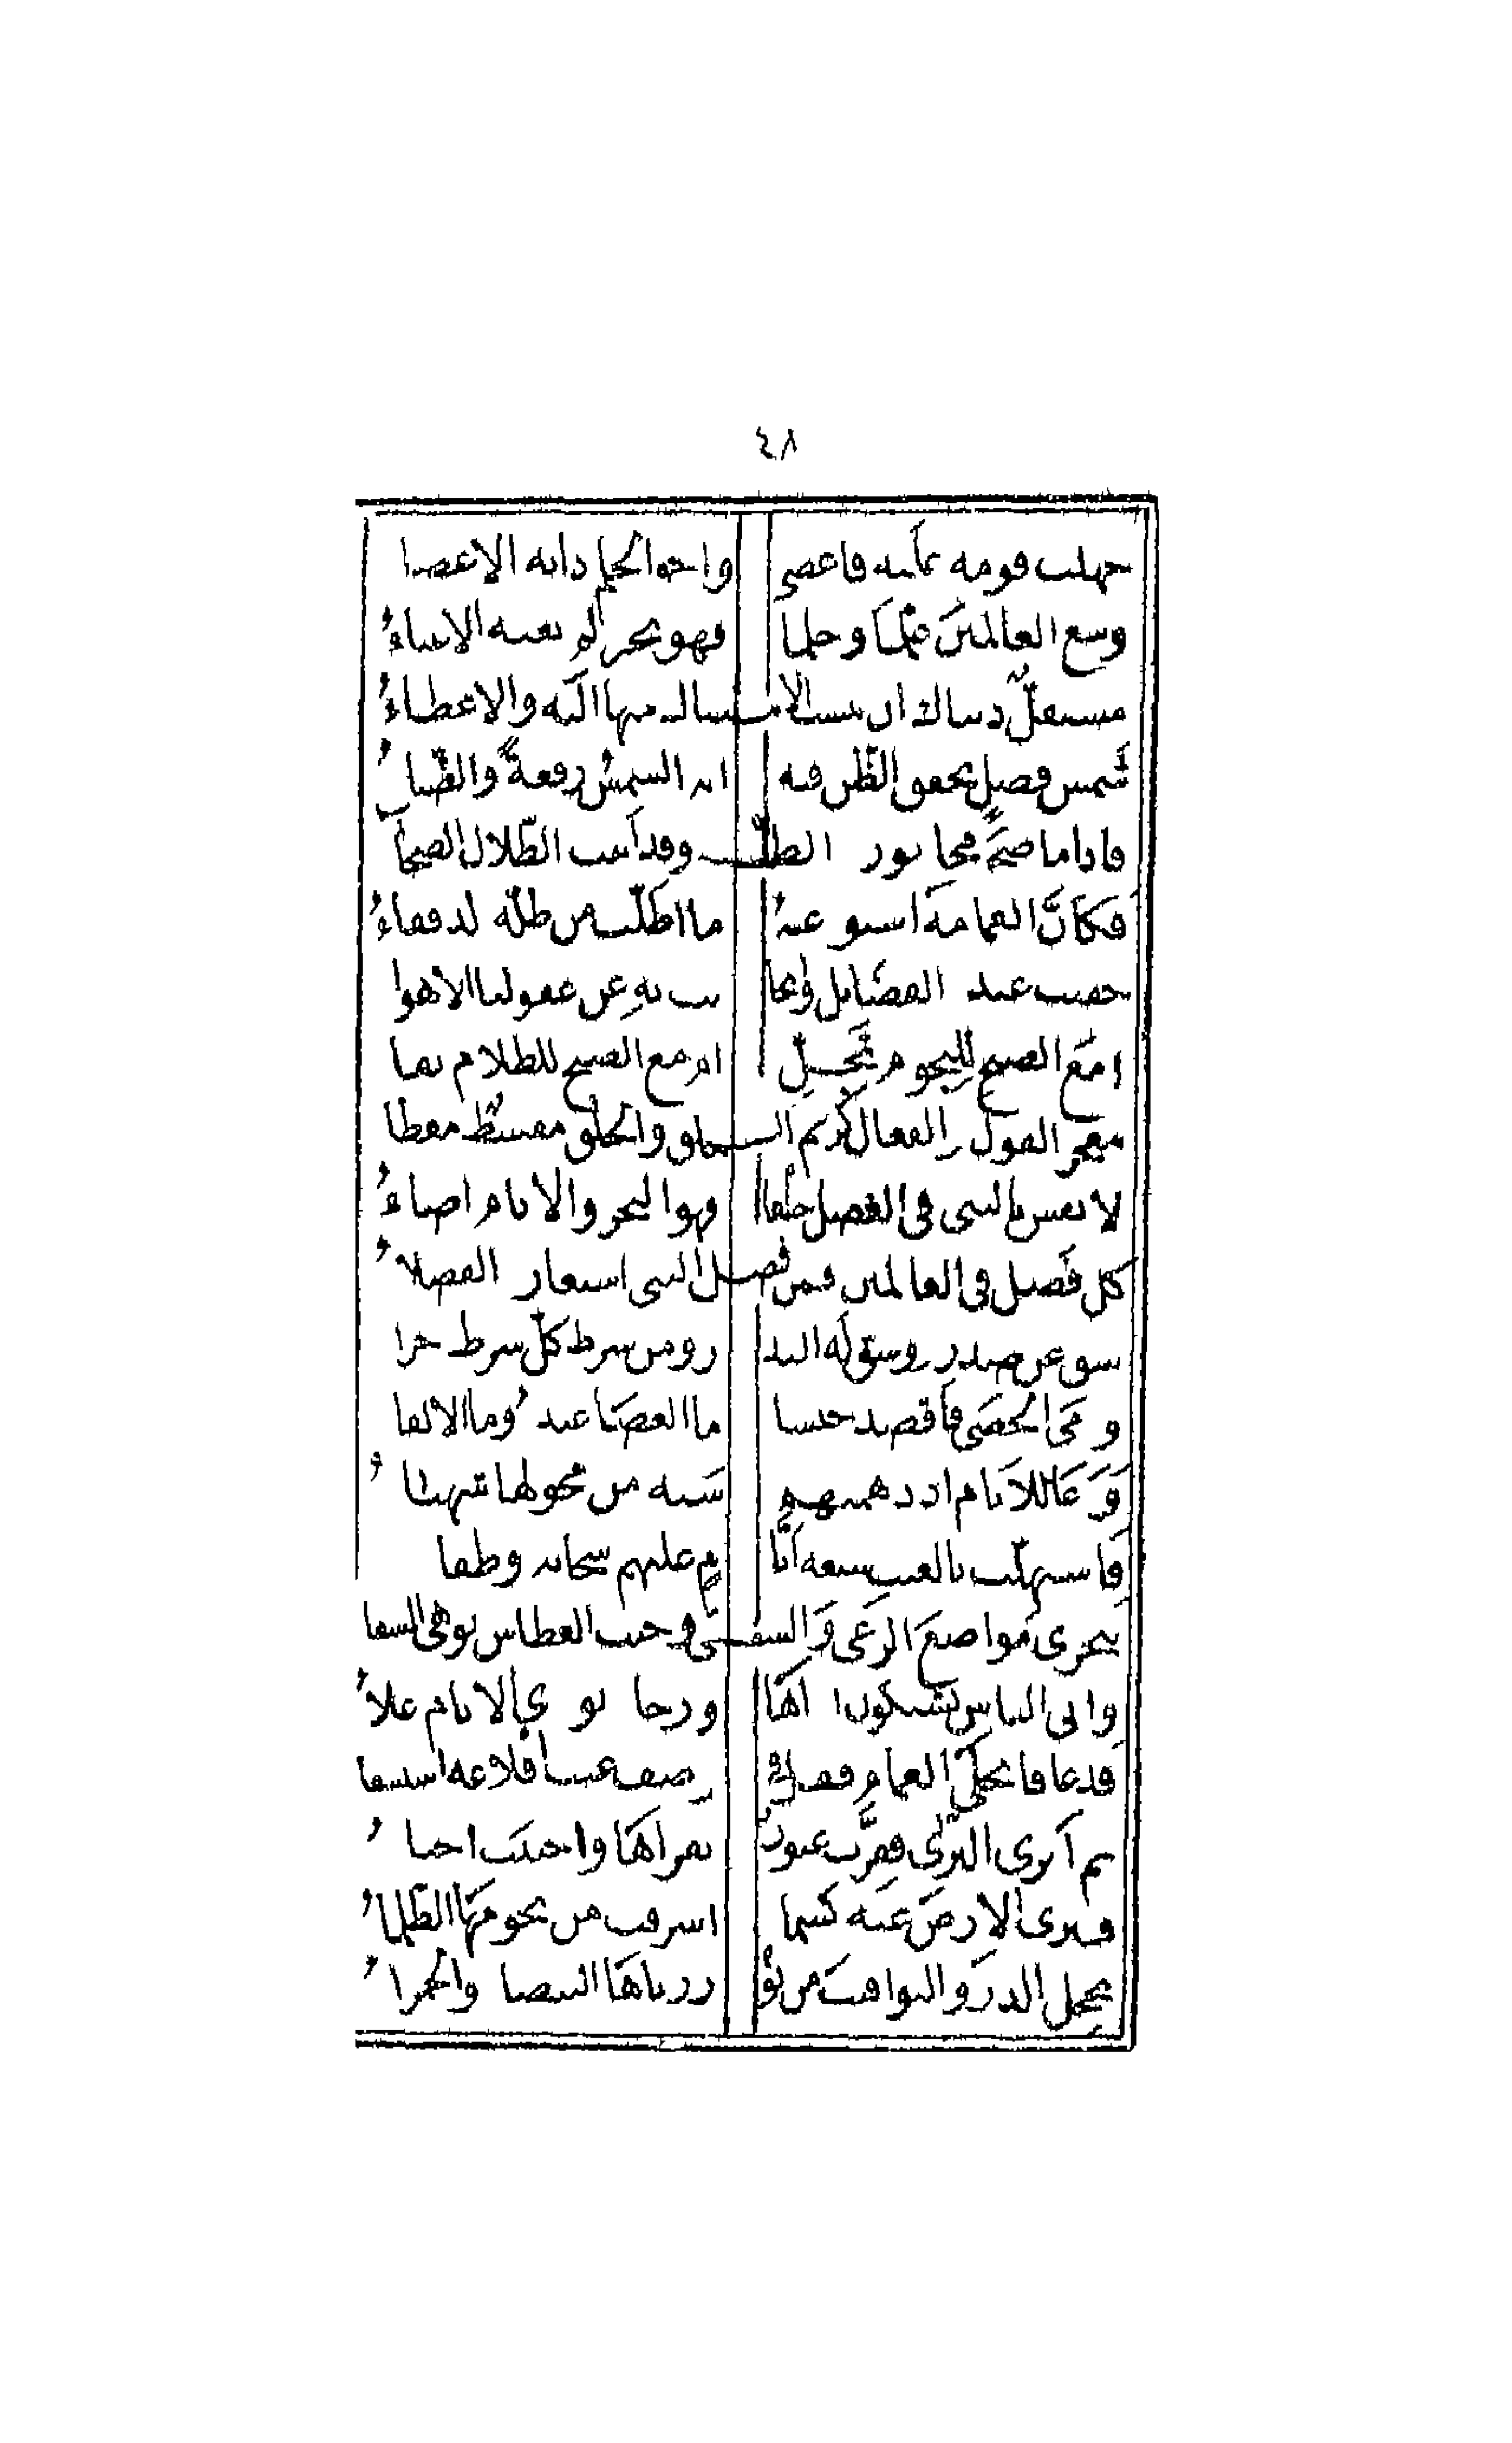 ٤٨
جهلت قومه عليه فاغضى واخو الحلم دابه الاغضا
وسع العالمين علما وحلما فهو بحر لم تعيه الاعباءُ
مستقلّ دنياك ان ينسب الامساك منها اليه والاعطاءُ
شمس فضل تحقق الظن فيه انه الشمس رفعةً والضياءُ
فاذا ما ضحى محا نوره الظلّ وقد اثبت الظّلال الضحا
فكانَّ الغمامة استودعته ما اظلّت من ظلّه الدففاءُ
خفيت عنده الفضايل وانجابت به عن عقولنا الاهوا
امع الصبح للنجوم تجلٍ ام مع الصبح للظلام بقا
معجز القول والفعال كريم الخلق والخلق مقسطٌ معطا
لا تقس بالنبى فى الفضل خلقا فهو البحر والانام اضاءُ
كل فضل فى العالمين فمن فضل النبى استعاره الفضلاءُ
شق عن صدره وشق له البدر ومن شرط كلّ شرط جزا
ورمى بالحصى فاقصد جيشا ما العصا عنده وما الالقا
وَدَعَا للانام اذ دهمتهم سَنه من محولها شهباءُ
فاستهلّت بالغيث سبعه ايّام عليهم سحابه وطفا
تتحرى مواضع الرعى والسقى وحيث العطاش توهى السقا
واتى الناس يشتكون اذاها ورخا يوذي الانام غلاءُ
فدعا فانجلى الغمام فقل فى وصف غيث اقلاعه استسقا
ثم اثرى الثرى فقرّت عيون بقراها واحييت احياءُ
فترى الارض غبه كسما اشرقت من نجومها الظلماءُ
تخجل الدر واليواقيت من نور رباها البيضا والحمراءُ